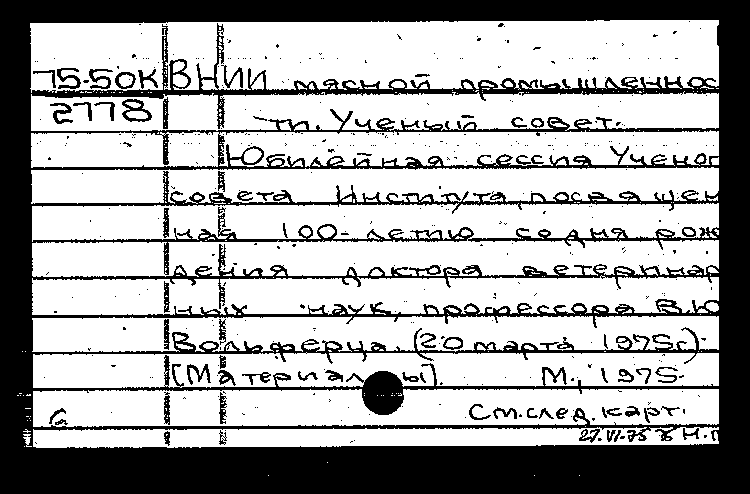 75-50К ВНИИ мясной промышленнос
2778 ти. Ученый совет.
Юбилейная сессия Ученог
совета Института, посвящен
ная 100-летию со дня рож
дения доктора ветеринар
ных наук, профессора В.Ю
Вольферца. (20 марта 1975г).
[Материалы]. М., 1975.
См.след.карт.
27.VI-75 Н.П